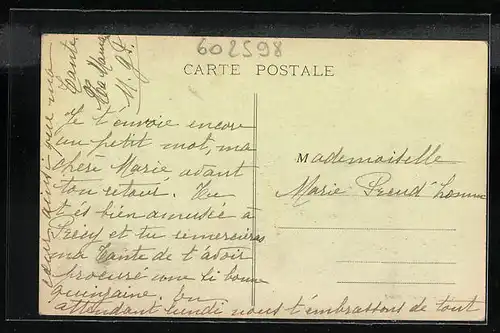 602598
CARTE POSTALE
Je t'envoie encore
un petit mot, ma
chère Marie, avant
ton retour. Tu
t'és bien amusée à
Précy et tu remercieras
ma Tante de t'avoir
procuré une si bonne
quinzaine. En
attendant lundi nous t'embrassons de tout
cœur ainsi que ma
Tante.
Ta Maman
M. J.
Mademoiselle
Marie Preud'homme